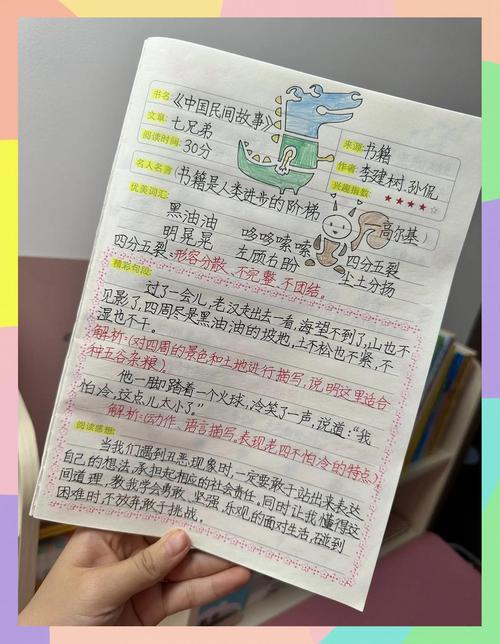 书名:《中国民间故事》
文章: 七兄弟
阅读时间: 30分
来源: 书籍
作者: 李建树.孙侃
兴趣指数: ★★★★☆
名人名言: (书籍是人类进步的阶梯 高尔基)
优美词汇:
黑油油 哆哆嗦嗦 四分五裂
明晃晃 左顾右盼 尘土分扬
四分五裂: 形容分散、不完整、不团结。
精彩句段:
过了一会儿,老汉走出去一看,海望不到了,山也不
见影了,四周尽是黑油油的坡地,土不松也不紧,不
湿也不干。
解析:(对四周的景色和土地进行描写,说明这里适合
种五谷杂粮)
他一脚踏着一个火球,冷笑了一声,说道:“我
怕冷,这点儿太小了。”
解析:(动作、语言描写。表现老四不怕冷的特点)
阅读感想:
当我们遇到丑恶现象时,一定要敢于站出来表达
自己的想法,承担起相应的社会责任。同时让我懂得这
间道理,教我学会勇敢、坚强,乐观的面对生活,在碰到
困难时,不放弃敢于挑战。